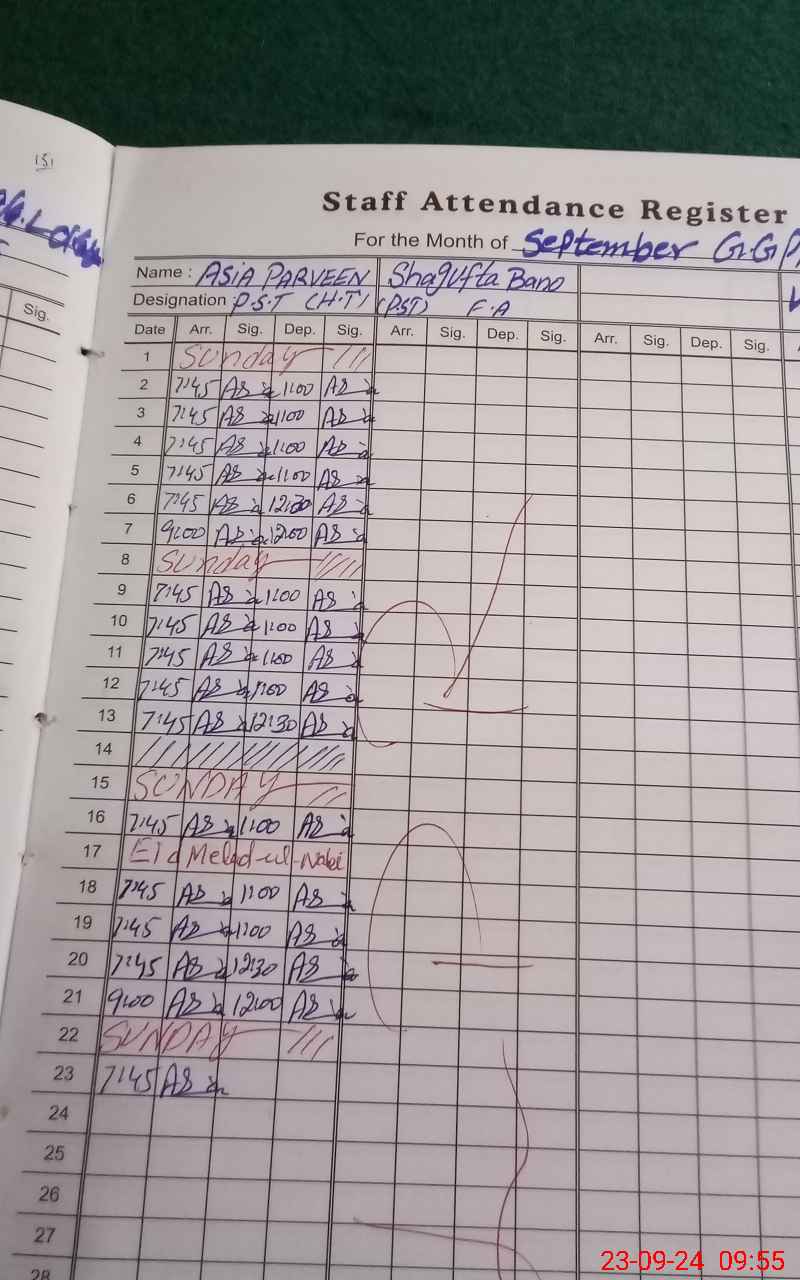 151
Staff Attendance Register
For the Month of September G.G.P
Name : ASIA PARVEEN Shagufta Bano
Designation : P.S.T (H.T) (P.S.T) F.A
Sig.
Date Arr. Sig. Dep. Sig. Arr. Sig. Dep. Sig. Arr. Sig. Dep. Sig.
1 Sunday
2 7:45 1:00
3 7:45 1:00
4 7:45 1:00
5 7:45 1:00
6 7:45 12:30
7 9:00 12:00
8 Sunday
9 7:45 1:00
10 7:45 1:00
11 7:45 1:00
12 7:45 1:00
13 7:45 12:30
14
15 SUNDAY
16 7:45 1:00
17 Eid Melad-ul-Nabi
18 7:45 1:00
19 7:45 1:00
20 7:45 12:30
21 9:00 12:00
22 SUNDAY
23 7:45
24
25
26
27
28
23-09-24 09:55